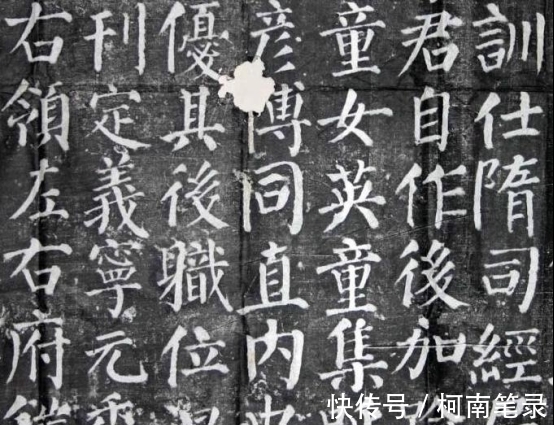 訓仕隋司經
君自作後加
童女英童集
彦博同直内
優其後職位
刊定義寧元
右領左右府
快传号 / 柯南笔录